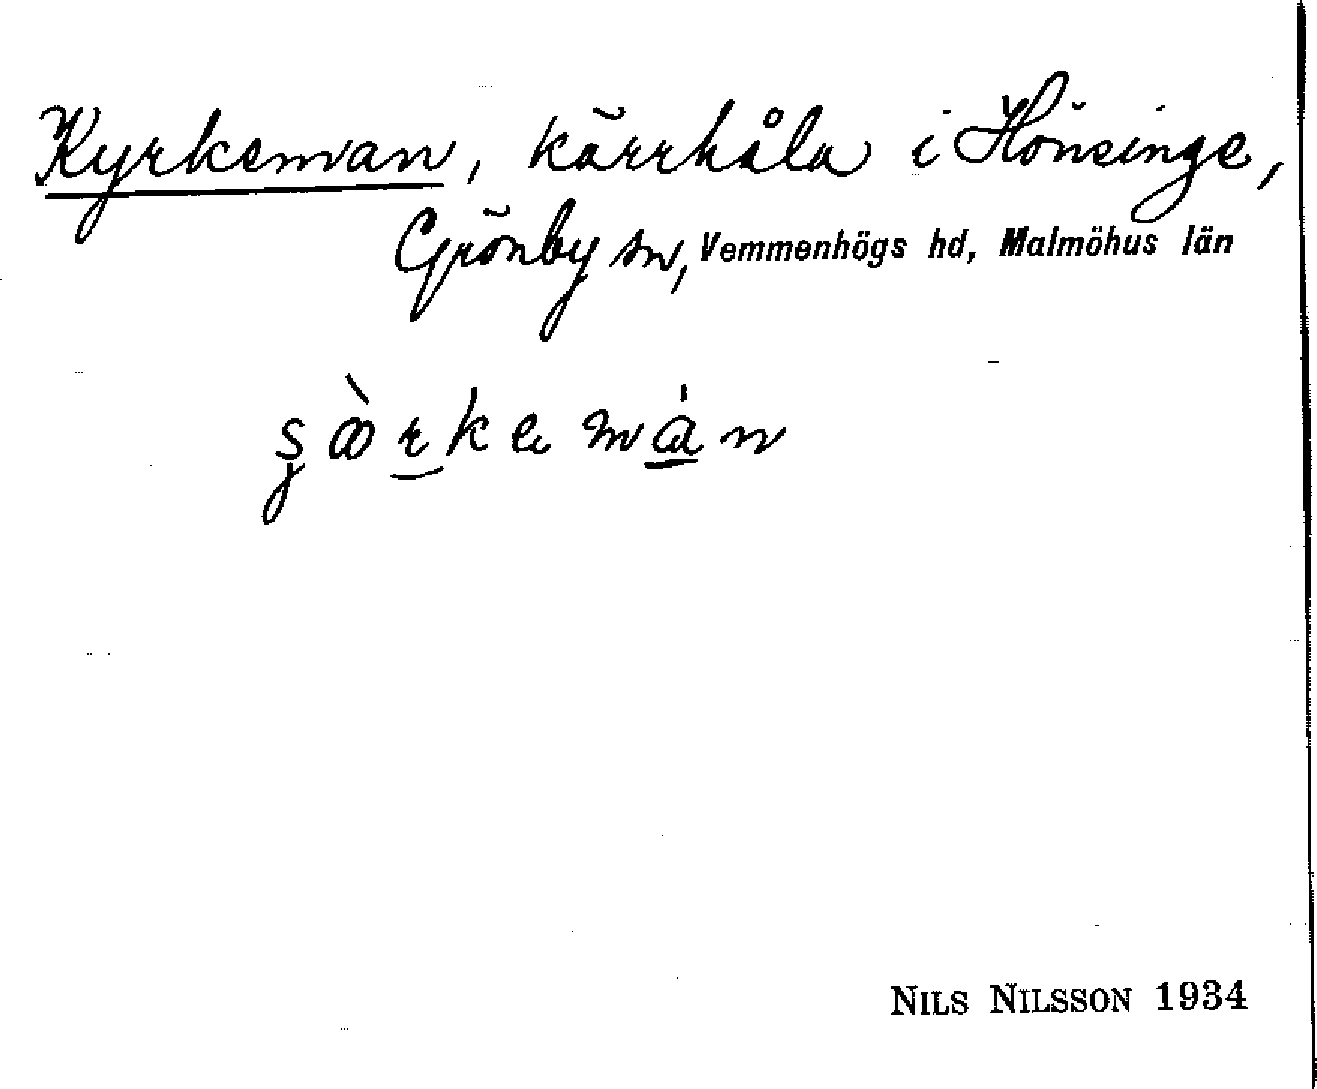 Kyrkeman, kärrhåla i Hönsinge,
Grönby sn, Vemmenhögs hd, Malmöhus län
NILS NILSSON 1934